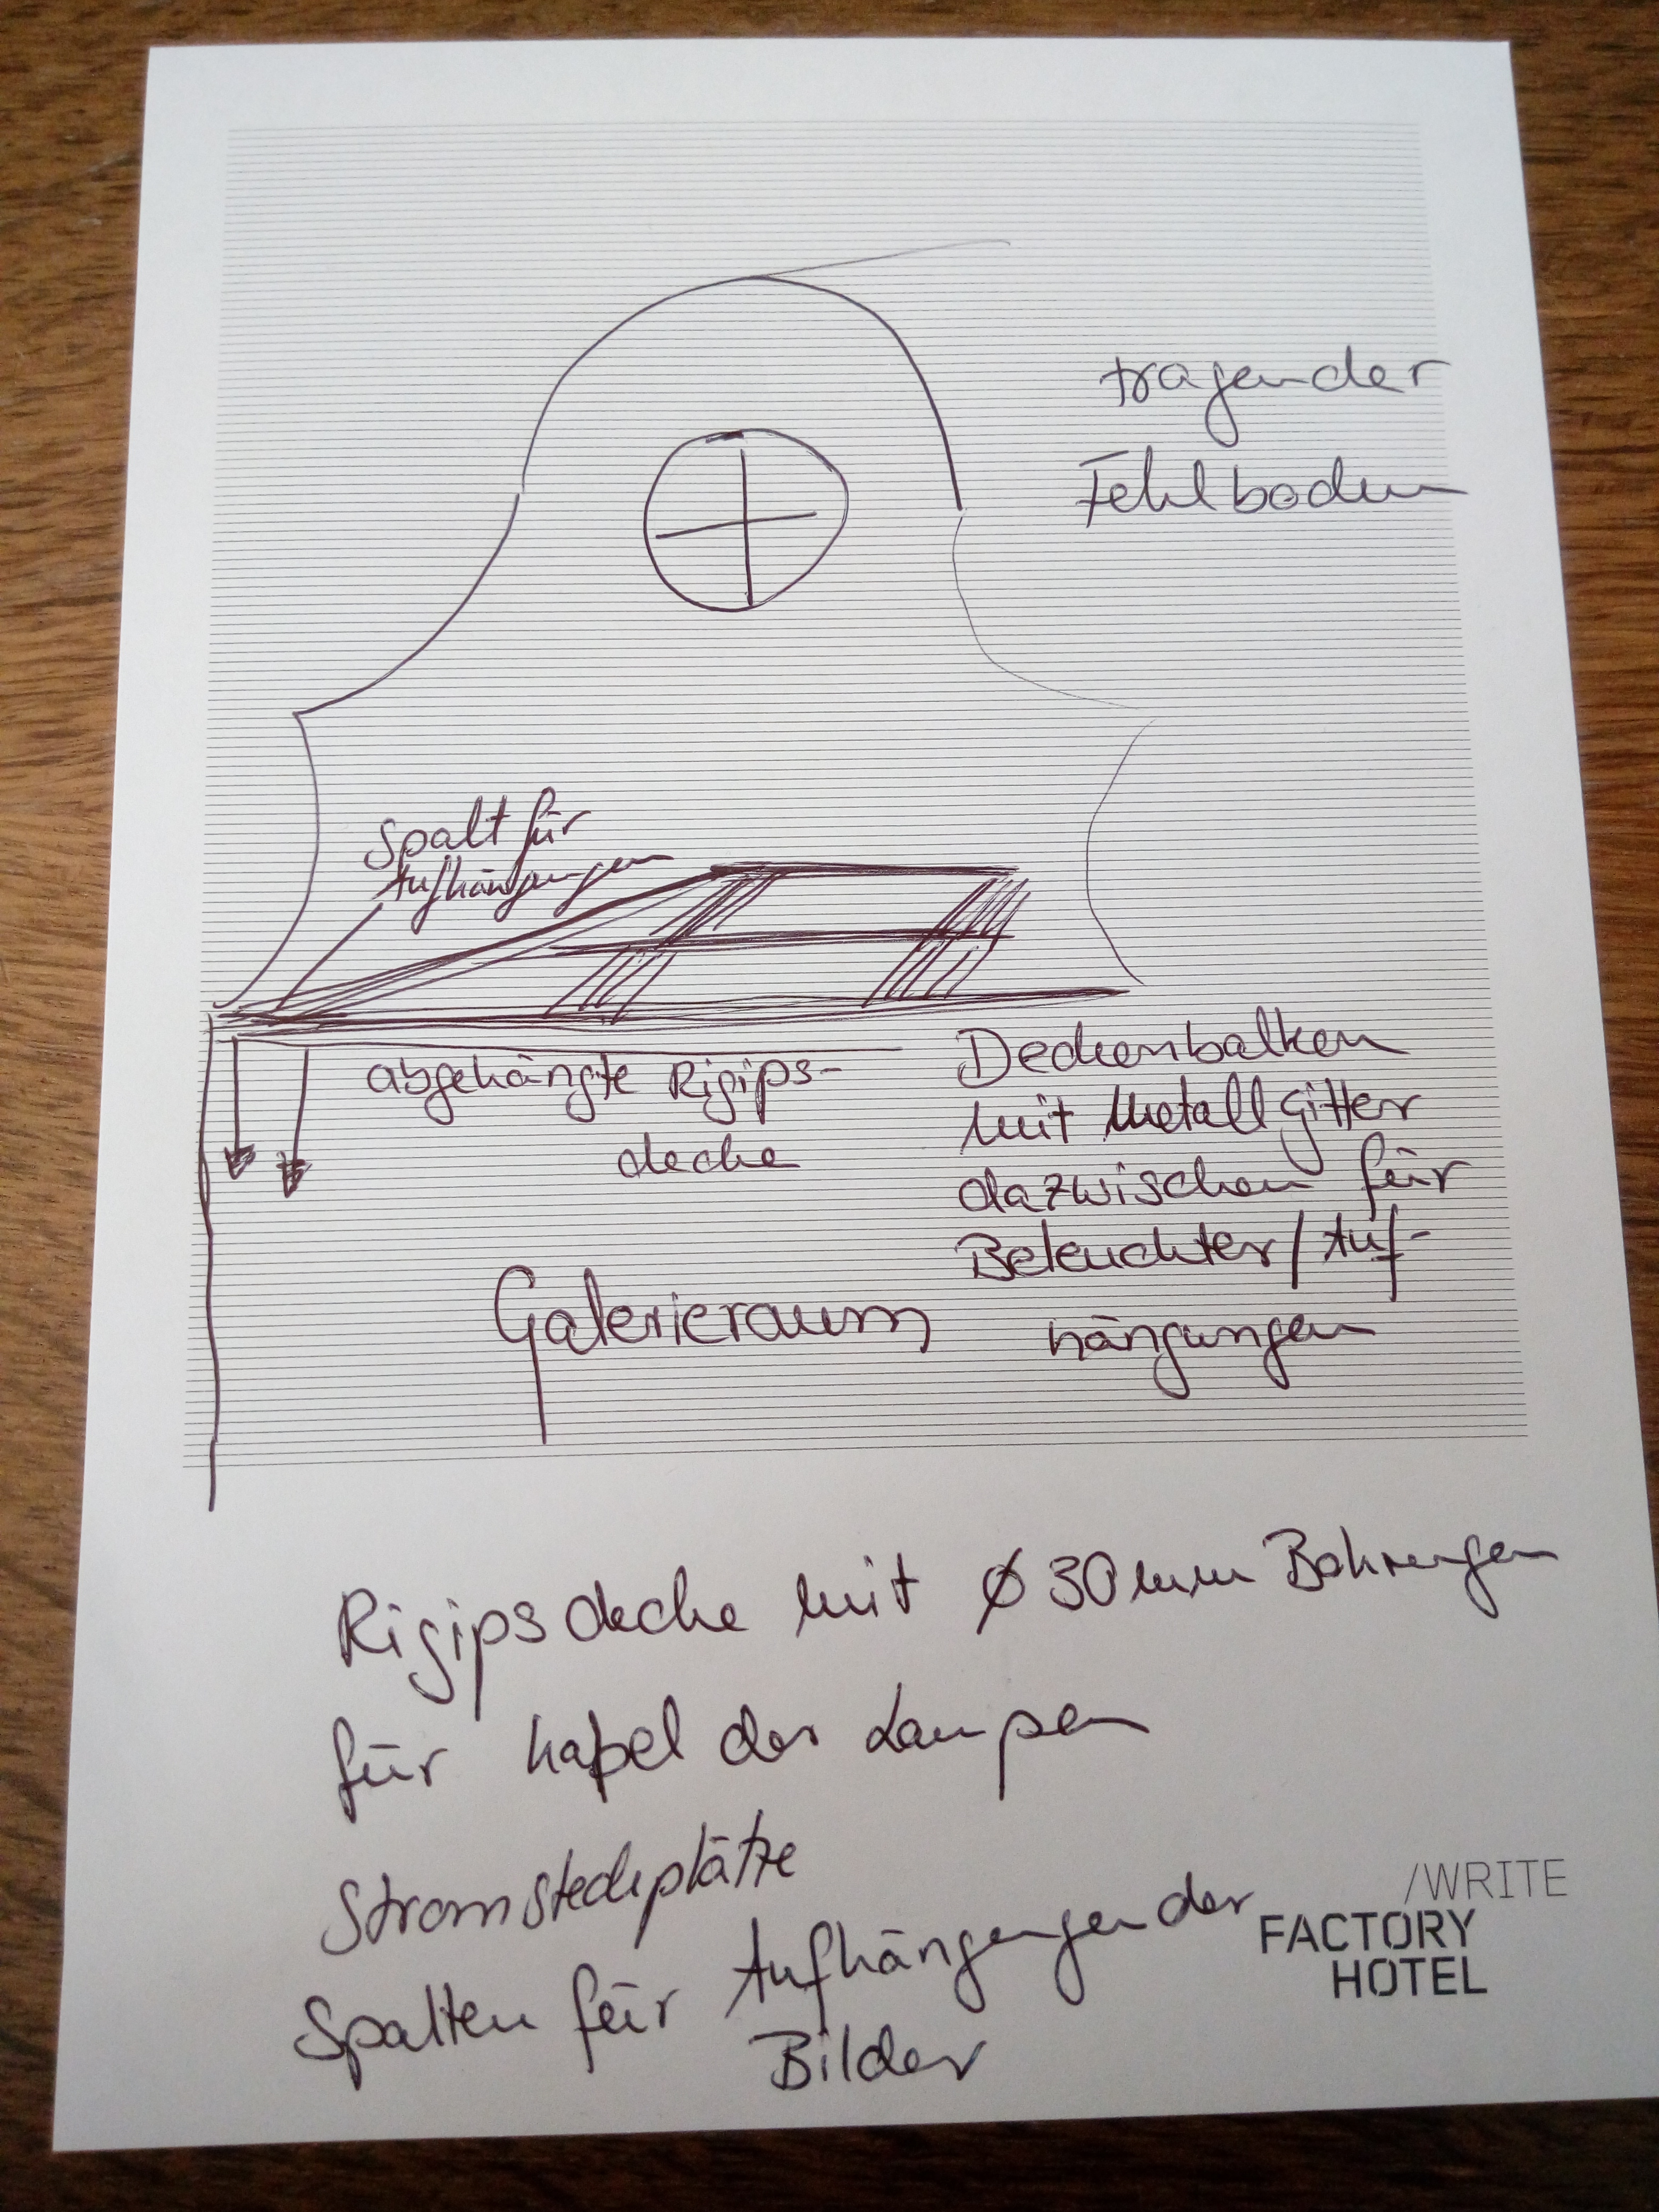 tragender
Fehlboden
Spalt für
Aufhängungen
abgehängte Rigips-
decke
Deckenbalken
mit Metallgitter
dazwischen für
Beleuchter/Auf-
hängungen
Galerieraum
Rigipsdecke mit Ø 30mm Bohrungen
für Kabel der Lampen
Stromsteckplätze
Spalten für Aufhängungen der
Bilder
/WRITE
FACTORY
HOTEL